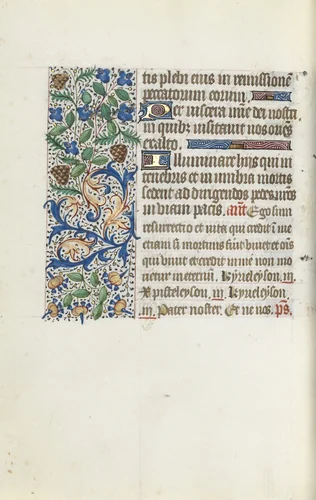 tis plebi eius in remissionē
peccatorum eorum.
Per viscera mīe dei nostri
in quib; visitauit nos oriēs
ex alto.
Illuminare hijs qui in
tenebris et in umbra mortis
sedent ad dirigendos pedes nr̄os
in viam pacis. añ. Ego sum
resurrectio et vita qui credit ī me
etiam si mortuus fuīt viuet et oīs
qui viuit et credit in me non mo
rietur in eternū. Kyrieleyson. iij.
Xp̄isteleyson. iij. Kyrieleyson.
iij. Pater noster. Et ne nos. p̄s.